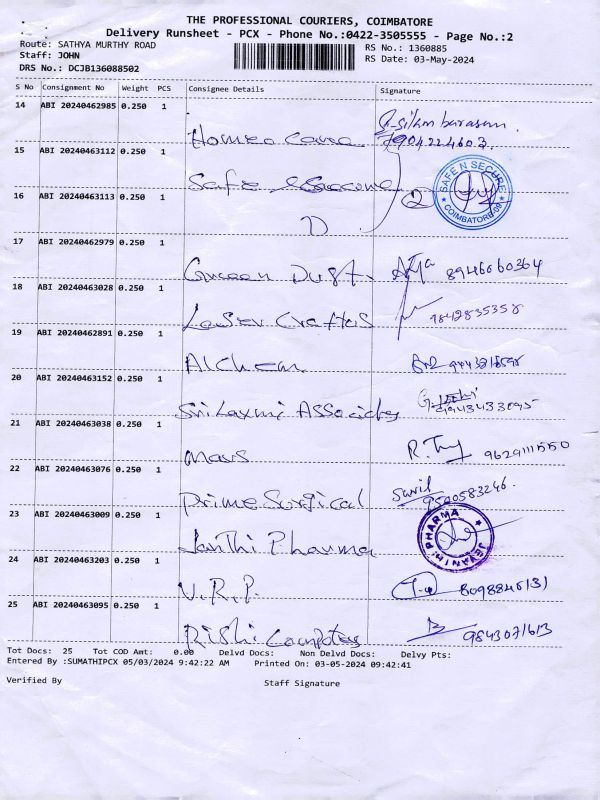 THE PROFESSIONAL COURIERS, COIMBATORE
Delivery Runsheet - PCX - Phone No.:0422-3505555 - Page No.:2
Route: SATHYA MURTHY ROAD
RS No.: 1360885
Staff: JOHN
RS Date: 03-May-2024
DRS No.: DCJB136088502
S No Consignment No Weight PCS Consignee Details Signature
14 ABI 20240462985 0.250 1
Homeo Care
7904224603
15 ABI 20240463112 0.250 1
Safe & Secure
SAFE N SECURE
COIMBATORE-09
16 ABI 20240463113 0.250 1
17 ABI 20240462979 0.250 1
Green Dust 8946060364
18 ABI 20240463028 0.250 1
Laser Crafters 9842835358
19 ABI 20240462891 0.250 1
Alchem
20 ABI 20240463152 0.250 1
Sri Laxmi Associates
21 ABI 20240463038 0.250 1
Mars 9629111550
22 ABI 20240463076 0.250 1
Prime Surgical 9500583246
23 ABI 20240463009 0.250 1
JEYANTHI PHARMA
Janthi Pharma
24 ABI 20240463203 0.250 1
V.R.P. 8098846131
25 ABI 20240463095 0.250 1
Rishi Computers 9843071613
Tot Docs: 25 Tot COD Amt: 0.00 Delvd Docs: Non Delvd Docs: Delvy Pts:
Entered By :SUMATHIPCX 05/03/2024 9:42:22 AM Printed On: 03-05-2024 09:42:41
Verified By Staff Signature